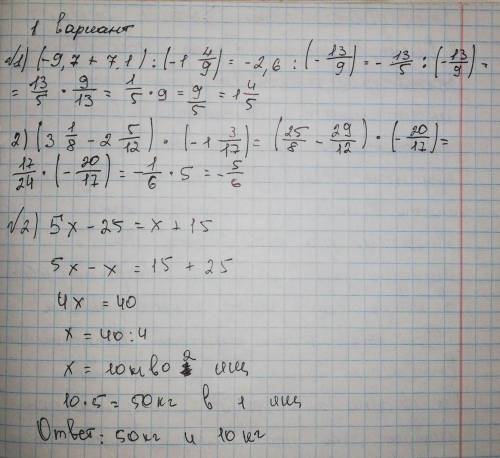 1 вариант
√1) (-9,7 + 7.1) : (-1 4/9) = -2,6 : (-13/9) = -13/5 : (-13/9) =
= 13/5 · 9/13 = 1/5 · 9 = 9/5 = 1 4/5
2) (3 1/8 - 2 5/12) · (-1 3/17) = (25/8 - 29/12) · (-20/17) =
17/24 · (-20/17) = -1/6 · 5 = -5/6
√2) 5x - 25 = x + 15
5x - x = 15 + 25
4x = 40
x = 40 : 4
x = 10кг во 2 ящ
10·5 = 50кг в 1 ящ
Ответ: 50кг и 10кг